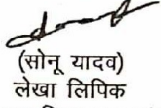 (सोनू यादव)
लेखा लिपिक